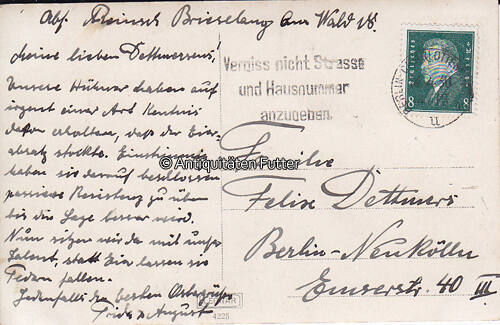 Abs. Reinsch Brieselang Am Wald 18.
Meine lieben Dettmersens!
Unsere Hühner haben auf
irgent einer Art Kentnis
davon erhalten, daß der Eier-
absatz stockte. Einstimmig
haben sie darauf beschlossen
passiven Resistenz zu üben
bis die Lage besser wird.
Nun sitzen wir da mit unser
Talent, statt Eier lassen sie
Federn fallen.
Jedenfalls die besten Ostergrüße
Frida & August
Vergiss nicht Strasse
und Hausnummer
anzugeben.
Deutsches Reich
8 8
BERLIN-
u
© Antiquitäten Futter
Familie
Felix Dettmers
Berlin-Neukölln
Emserstr. 40 III
4225